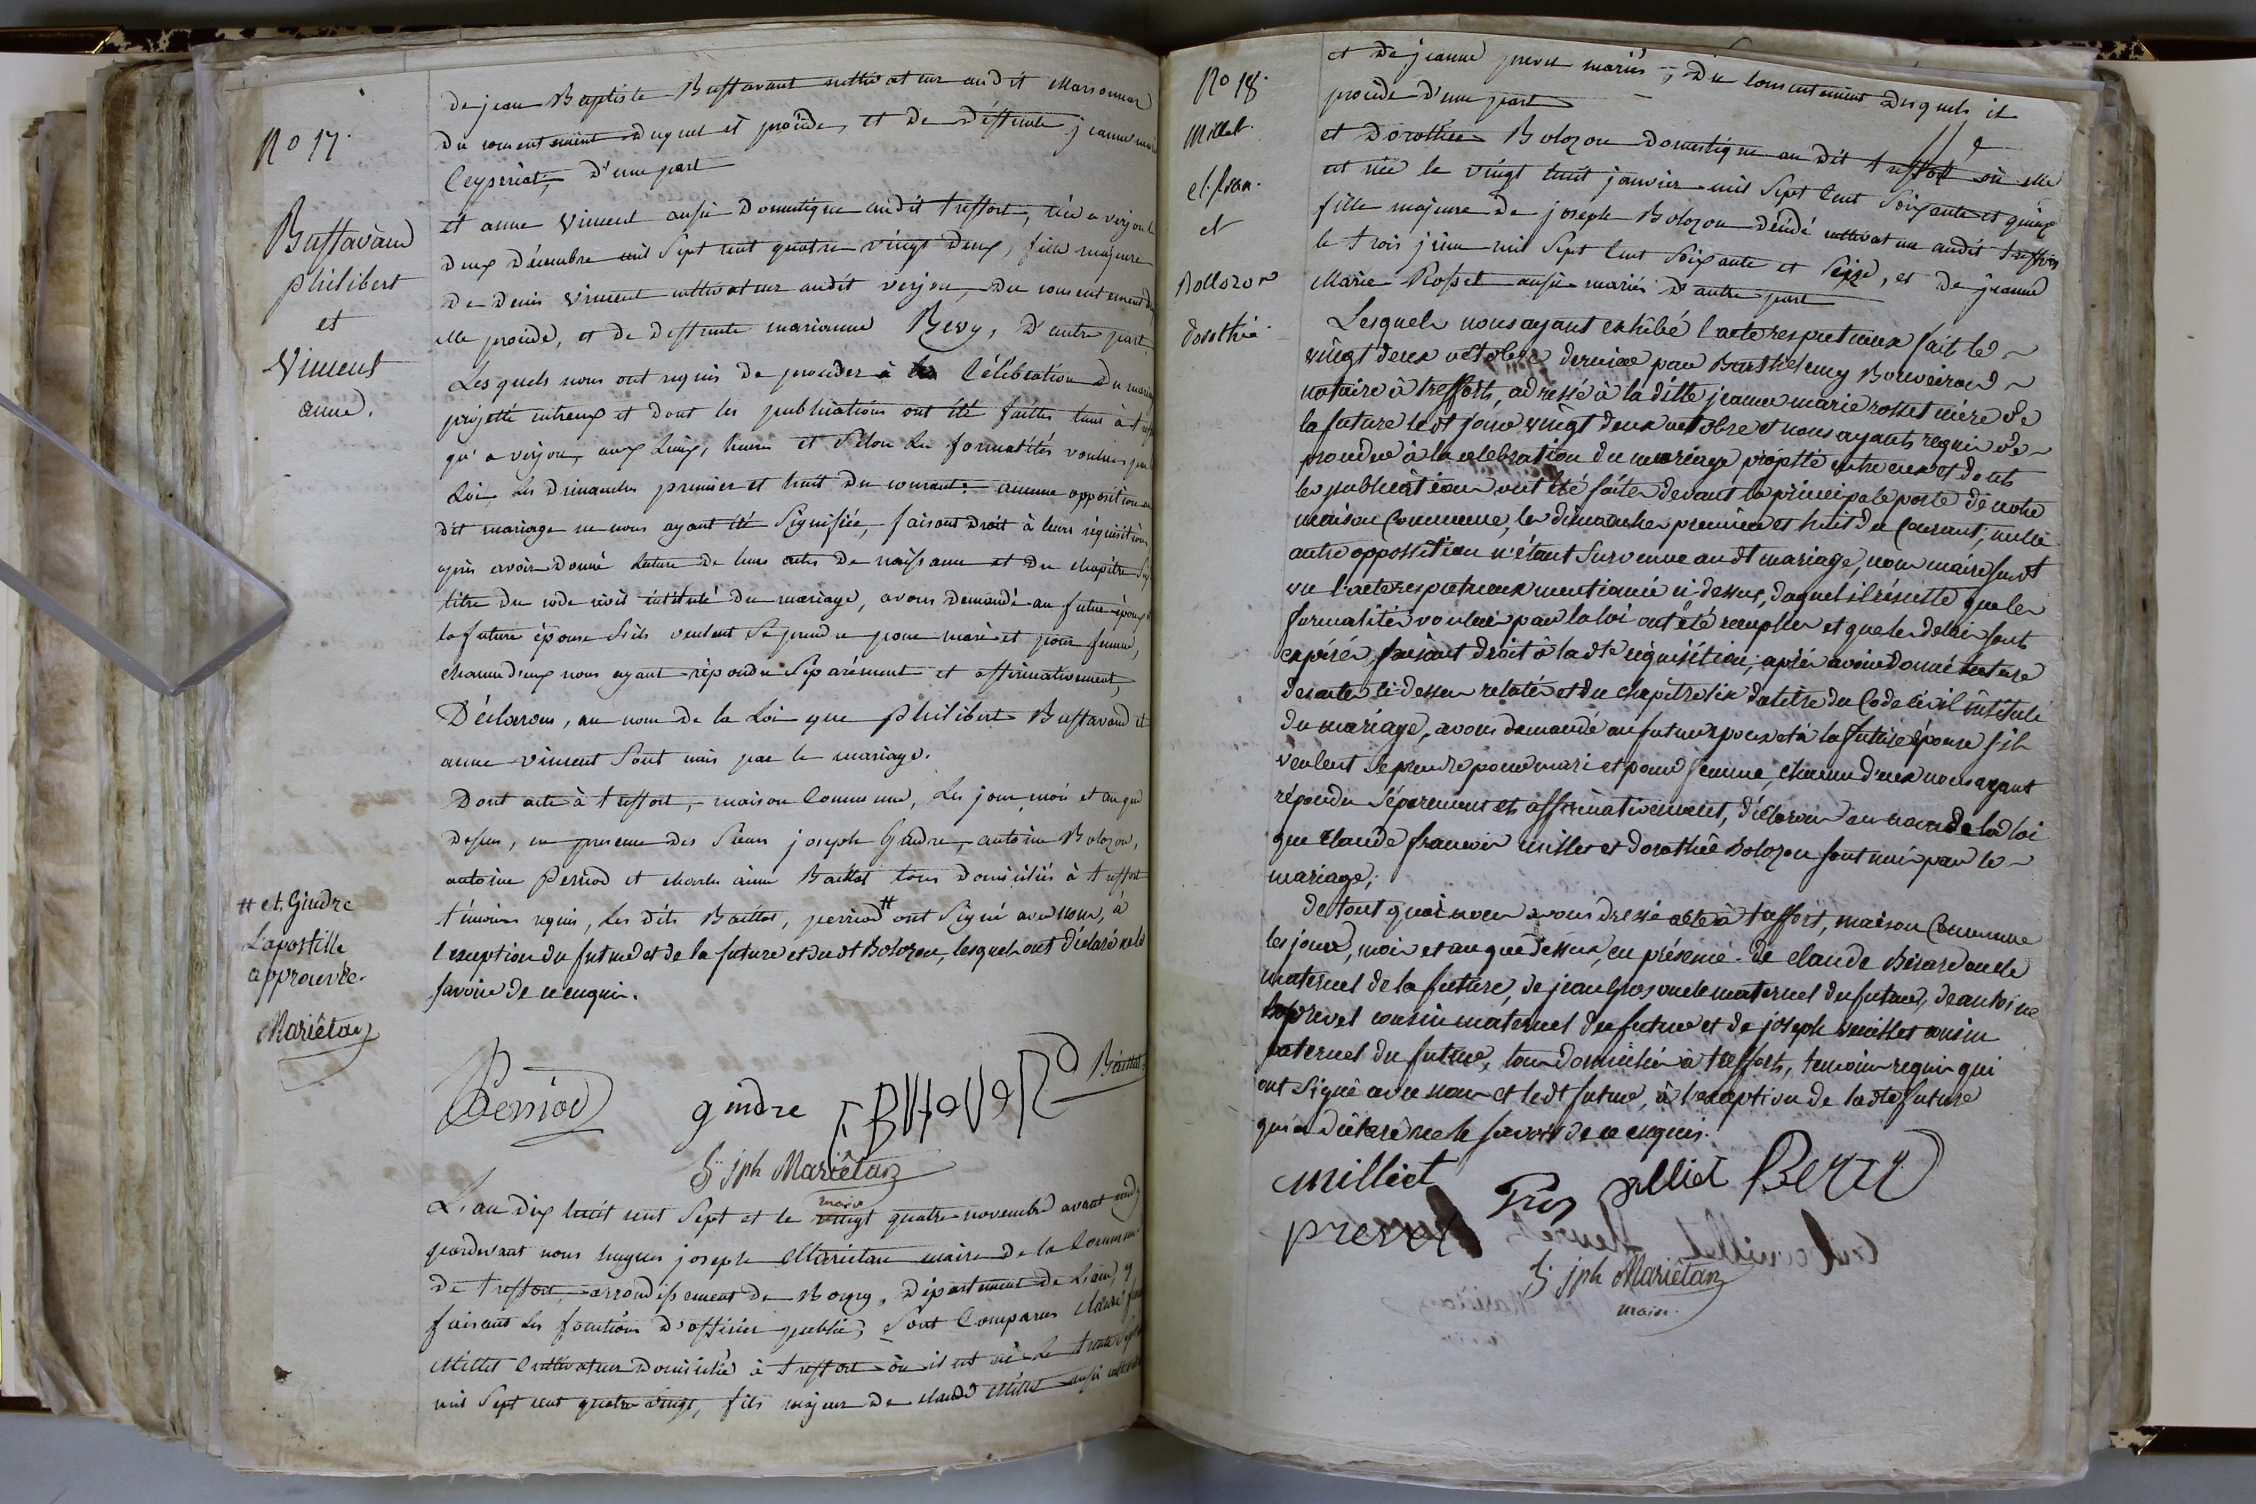 de jean Baptiste Buffavant cultivateur audit Marsonnas
du consentement duquel il procède, et de deffunte jeanne marie
Ceyzeriat, d'une part
No 17.
et anne Vincent aussi domestique audit treffort, née a verjon le
deux décembre mil Sept cent quatre vingt deux, fille majeure
de denis Vincent cultivateur audit verjon, du consentement du
elle procède, et de deffunte marianne Revy, d'autre part.
Buffavand
philibert
et
Vincent
anne.
Lesquels nous ont requis de proceder à la Célébration du mariage
projetté entreux et dont les publications ont été faittes tant à
qu'a verjon, aux Lieux, heures et Selon les formalités voulues par
Loi, les dimanches premier et huit du courant. aucune opposition au
dit mariage ne nous ayant été Signifiée, faisant droit à leurs réquisitions
après avoir donné Lecture de leurs actes de naissance et du chapitre Six
titre du code civil intitulé du mariage, avons demandé au futur époux
la future épouse S'ils veulent Se prendre pour mari et pour femme,
chacun deux nous ayant répondu Séparément et affirmativement,
Déclarons, au nom de la Loi que philibert Buffavand et
anne Vincent Sont unis par le mariage.
Dont acte à treffort, maison Commune, Les jour, mois et an que
dessus, en presence des Sieurs joseph Gindre, antoine Bolozon,
antoine Perriod et charles aimé Baillat tous domiciliés à treffort
témoins requis, Les dits Baillat, perriod # ont Signé avec nous, à
l'exception du futur et de la future et dudt Bolozon, lesquels ont déclaré ne le
savoir de ce enquis.
# et Gindre
L'apostille
approuvée.
Mariétan
Perriod gindre F. BUfaVaND Baillat
h. jph Mariétan
maire
L'an dix huit cent Sept et le vingt quatre novembre avant midy
pardevant nous hugues joseph Mariétan maire de la Commune
de treffort, arrondissement de Bourg, Département de L'ain, y
faisant Les fonctions d'officier public, Sont Comparus claude
Millet Cultivateur domicilié à treffort où il est né Le trente
mil Sept cent quatre vingt, fils majeur de claude Millet aussi cultivateur
No 18.
Millet
cl. fran.
et
Bollozon
dorothée.
et de jeanne prevel mariés, du consentement desquels il
procède d'une part
et dorothée Bolozon domestique au dit treffort où elle
est née le vingt huit janvier mil Sept Cent Soixante et quinze
fille majeure de joseph Bolozon décédé cultivateur audit treffort
le trois juin mil Sept Cent Soixante et Seize, et de jeanne
Marie Rosset aussi mariés d'autre part
Lesquels nous ayant exhibé l'acte respectueux fait le
vingt deux octobre dernier par Barthelemy Bouveirond
notaire à treffort, adressé à la ditte jeanne marie rosset mère de
la future ledt jour vingt deux octobre et nous ayants requis de
proceder à la celebration du mariage projetté entre eux et dont
les publications ont été faites devant la principale porte de notre
maison Commune, les dimanches premier et huit du Courant, nulle
autre oppossition n'étant Survenue audt mariage, nous maire susdt
vu l'acte respectueux mentionné ci-dessus, duquel il résulte que les
formalités voulues par la loi ont été remplies et que les delais sont
expirés, faisant droit à ladte requisition, après avoir donné lecture
des actes ci-dessus relatés et du chapitre six du titre du Code Civil intitulé
du mariage, avons demandé au futur époux et à la future épouse s'ils
veulent Se prendre pour mari et pour femme, chacun d'eux nous ayant
répondu Séparement et affirmativement, déclarons au nom de la loi
que claude francois millet et dorothée Bolozon sont unis par le
mariage;
de tout quoi nous avons dressé acte à treffort, maison Commune
les jour, mois et an que dessus, en présence de claude Bérard oncle
maternel de la future, de jean Gros oncle maternel du futur, de antoine
prevel cousin maternel du futur et de joseph millet cousin
paternel du futur, tous domiciliés à treffort, temoins requis qui
ont Signé avec nous et ledt futur, à l'exception de ladte future
qui a déclaré ne le savoir de ce enquis.
milliet Gros Milliet Berar
prevel
h. jph Mariétan
maire.